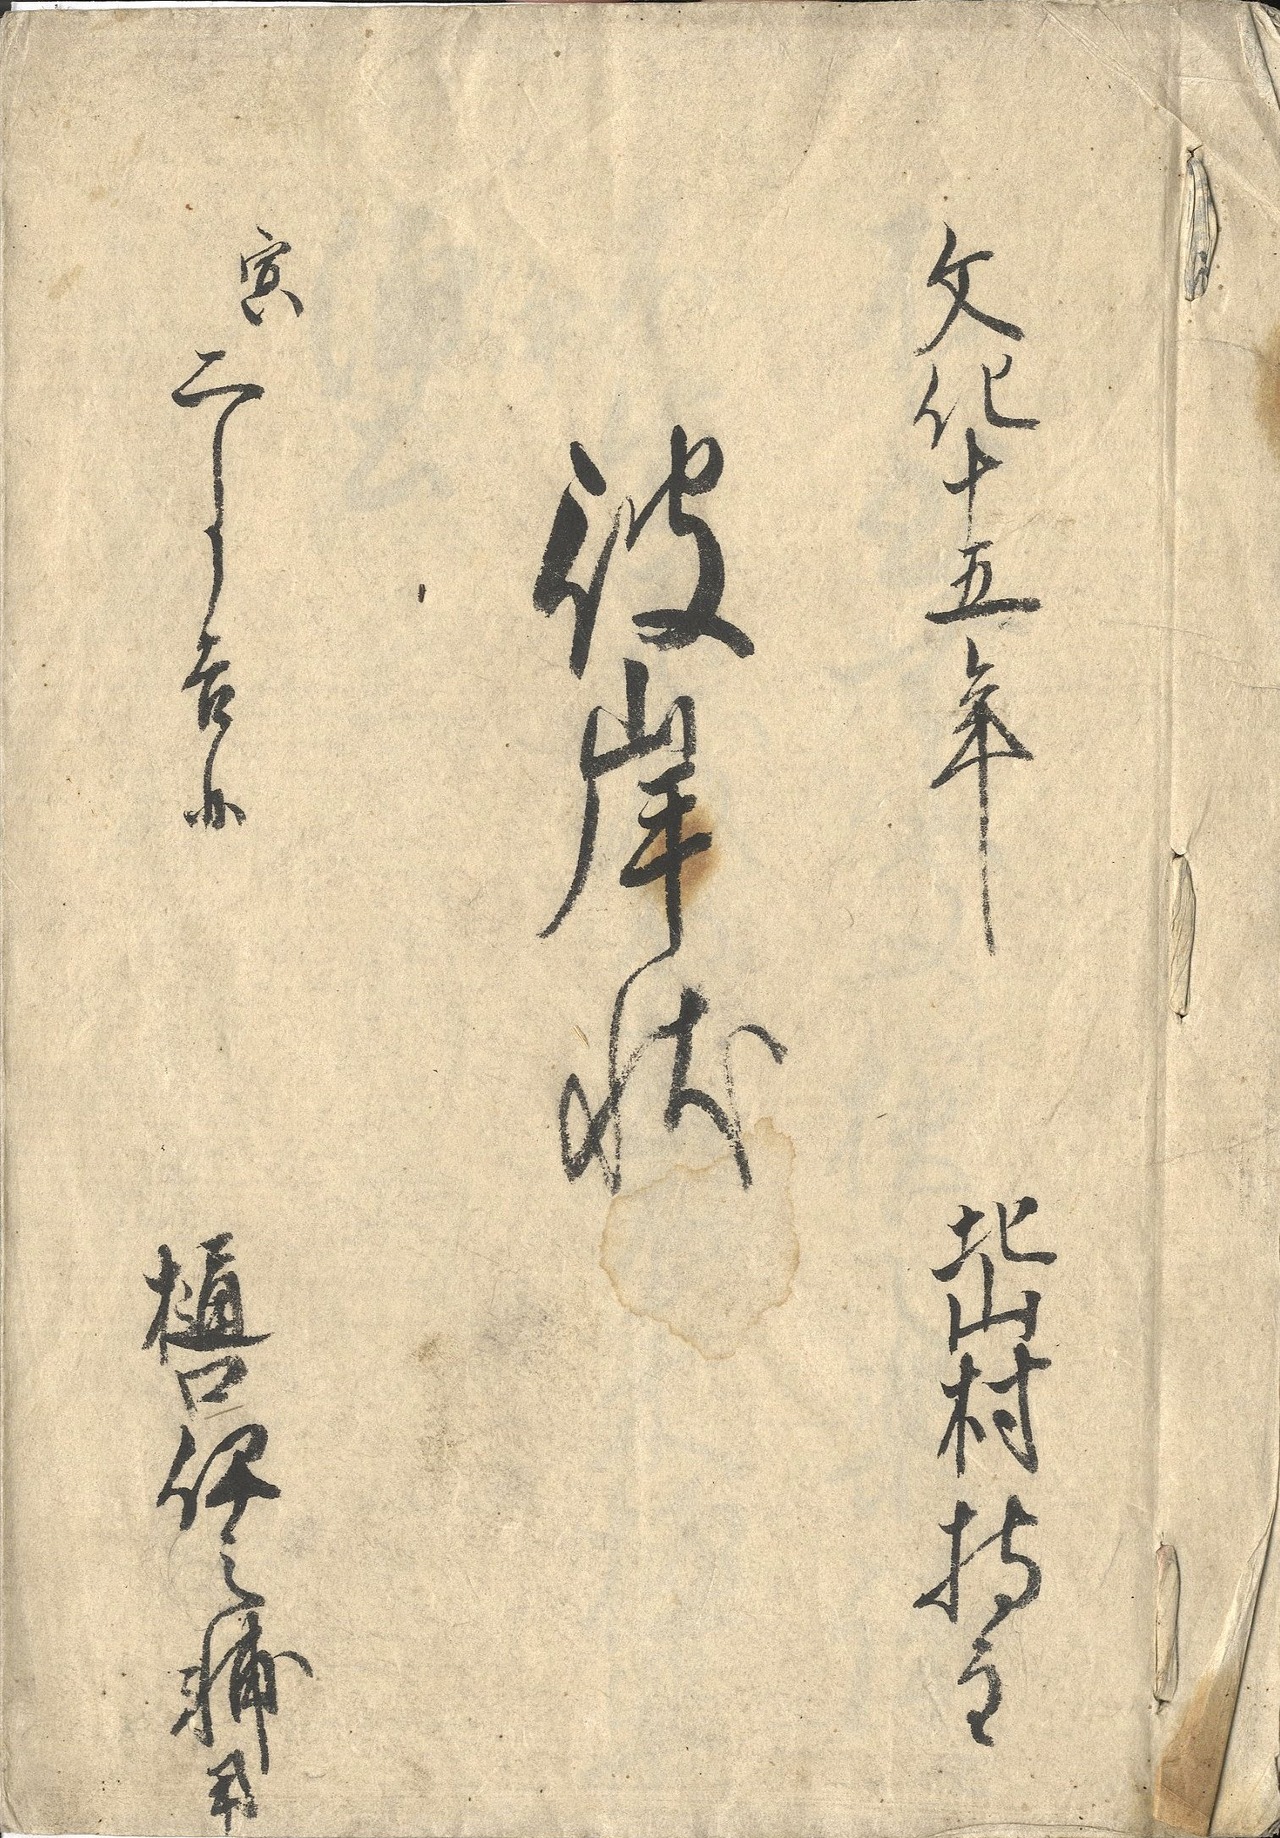 文化十五年
北山村 持主
彼岸状
寅二月吉日
樋口伊之輔